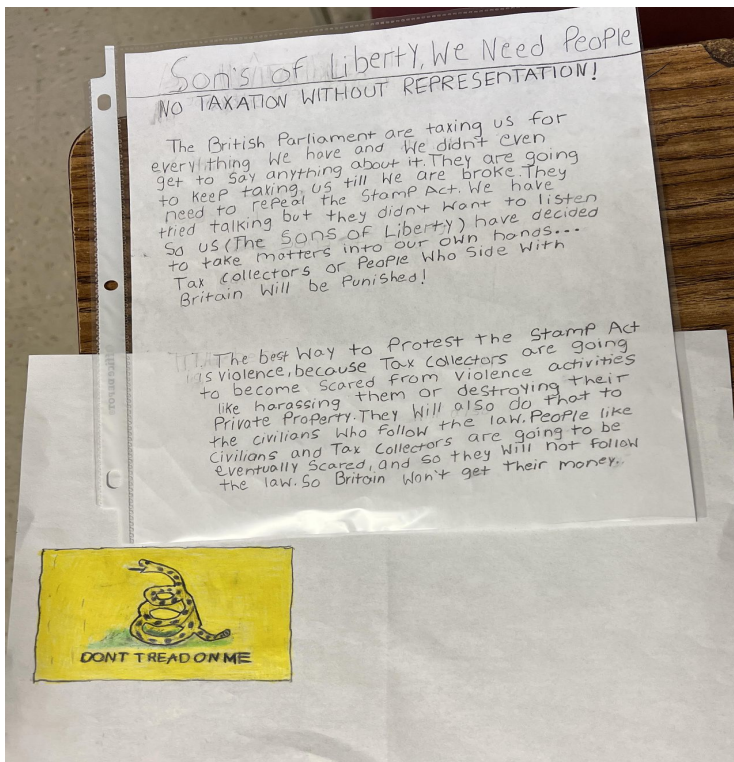 Son's of Liberty, We Need People
NO TAXATION WITHOUT REPRESENTATION!
The British Parliament are taxing us for
every thing We have and We didn't even
get to say anything about it. They are going
to keep taking, us till We are broke. They
need to repeal the Stamp Act. We have
tried talking but they didn't want to listen
So us (The Sons of Liberty) have decided
to take matters into our own hands...
Tax collectors or People Who Side With
Britain Will be Punished!
The best Way to Protest the Stamp Act
is violence, because Tax Collectors are going
to become scared from violence activities
like harassing them or destroying their
Private Property. They Will also do that to
the civilians who follow the law. People like
Civilians and Tax Collectors are going to be
eventually scared, and so they will not follow
the law. So Britain Won't get their money.
DONT TREAD ON ME